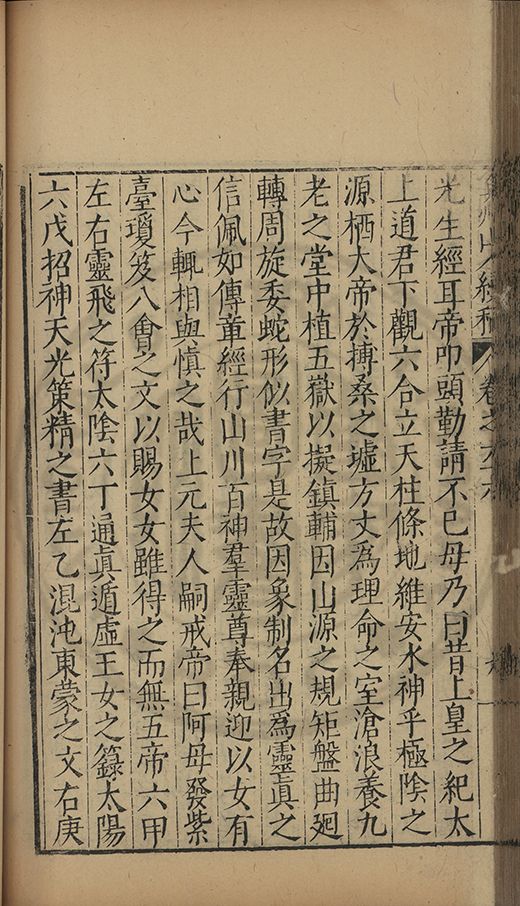 山人續稿 卷之六十六 六
光生經耳帝叩頭勤請不巳母乃曰昔上皇之紀太
上道君下觀六合立天柱條地維安水神乎極陰之
源栖大帝於搏桑之墟方丈為理命之室滄浪養九
老之堂中植五嶽以擬鎮輔因山源之規矩盤曲廻
轉周旋委蛇形似書字是故因象制名出為靈眞之
信佩如傳章經行山川百神羣靈尊奉親迎以女有
心今輒相與慎之哉上元夫人嗣戒帝曰阿母發紫
臺瓊笈八會之文以賜女女雖得之而無五帝六甲
左右靈飛之符太陰六丁通眞遁虛王女之籙太陽
六戊招神天光策精之書左乙混沌東蒙之文右庚